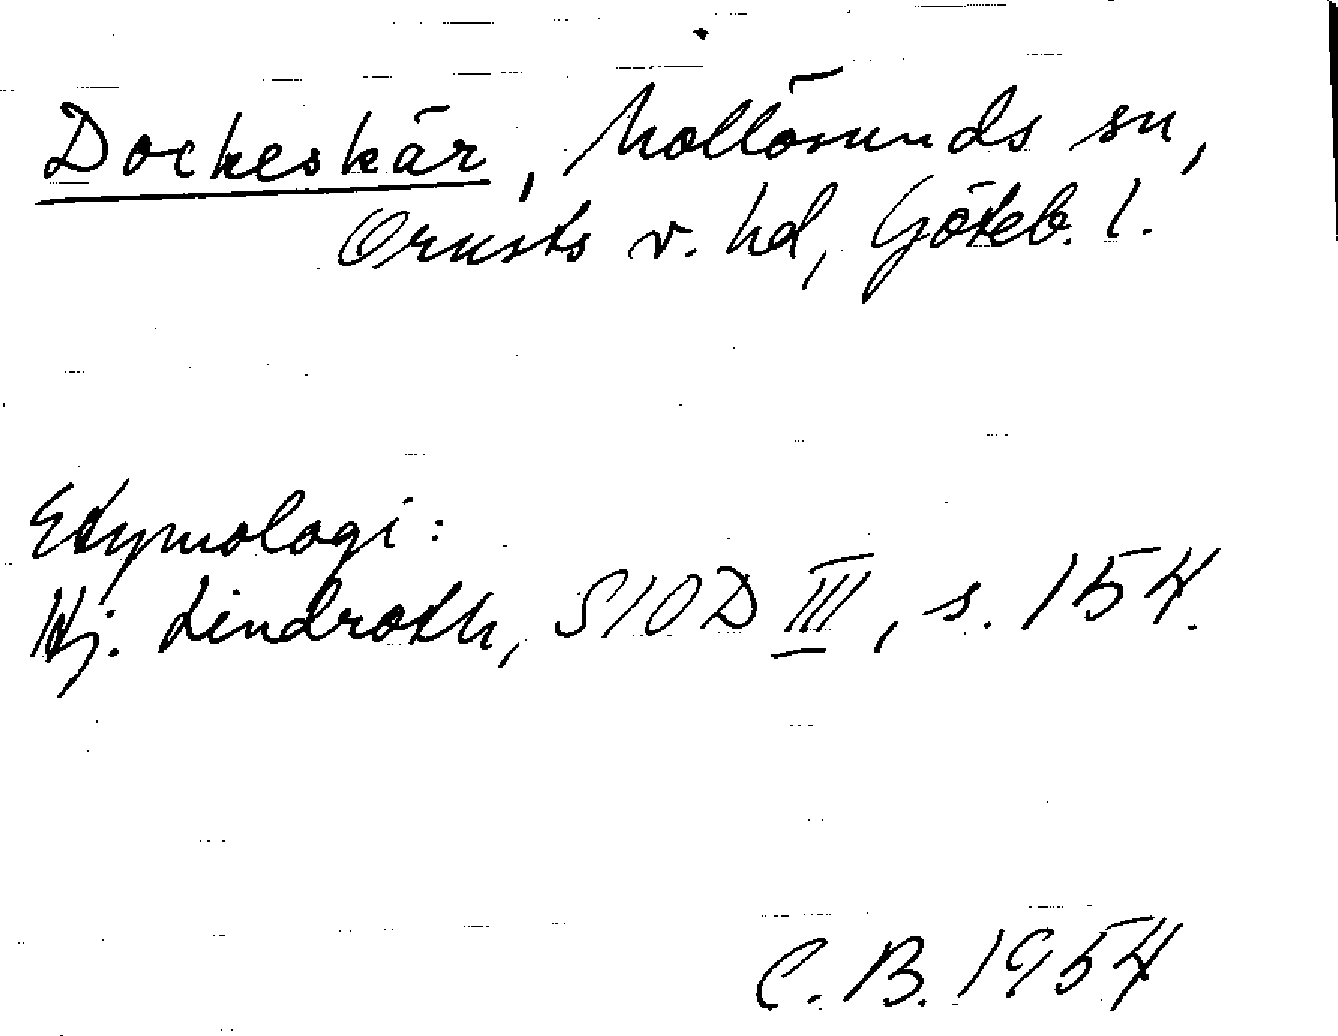 Dockeskär, Mollösunds sn,
Orusts v. hd, Göteb. l.
Etymologi:
Hj. Lindroth, SIOD III, s. 154.
C. B. 1954